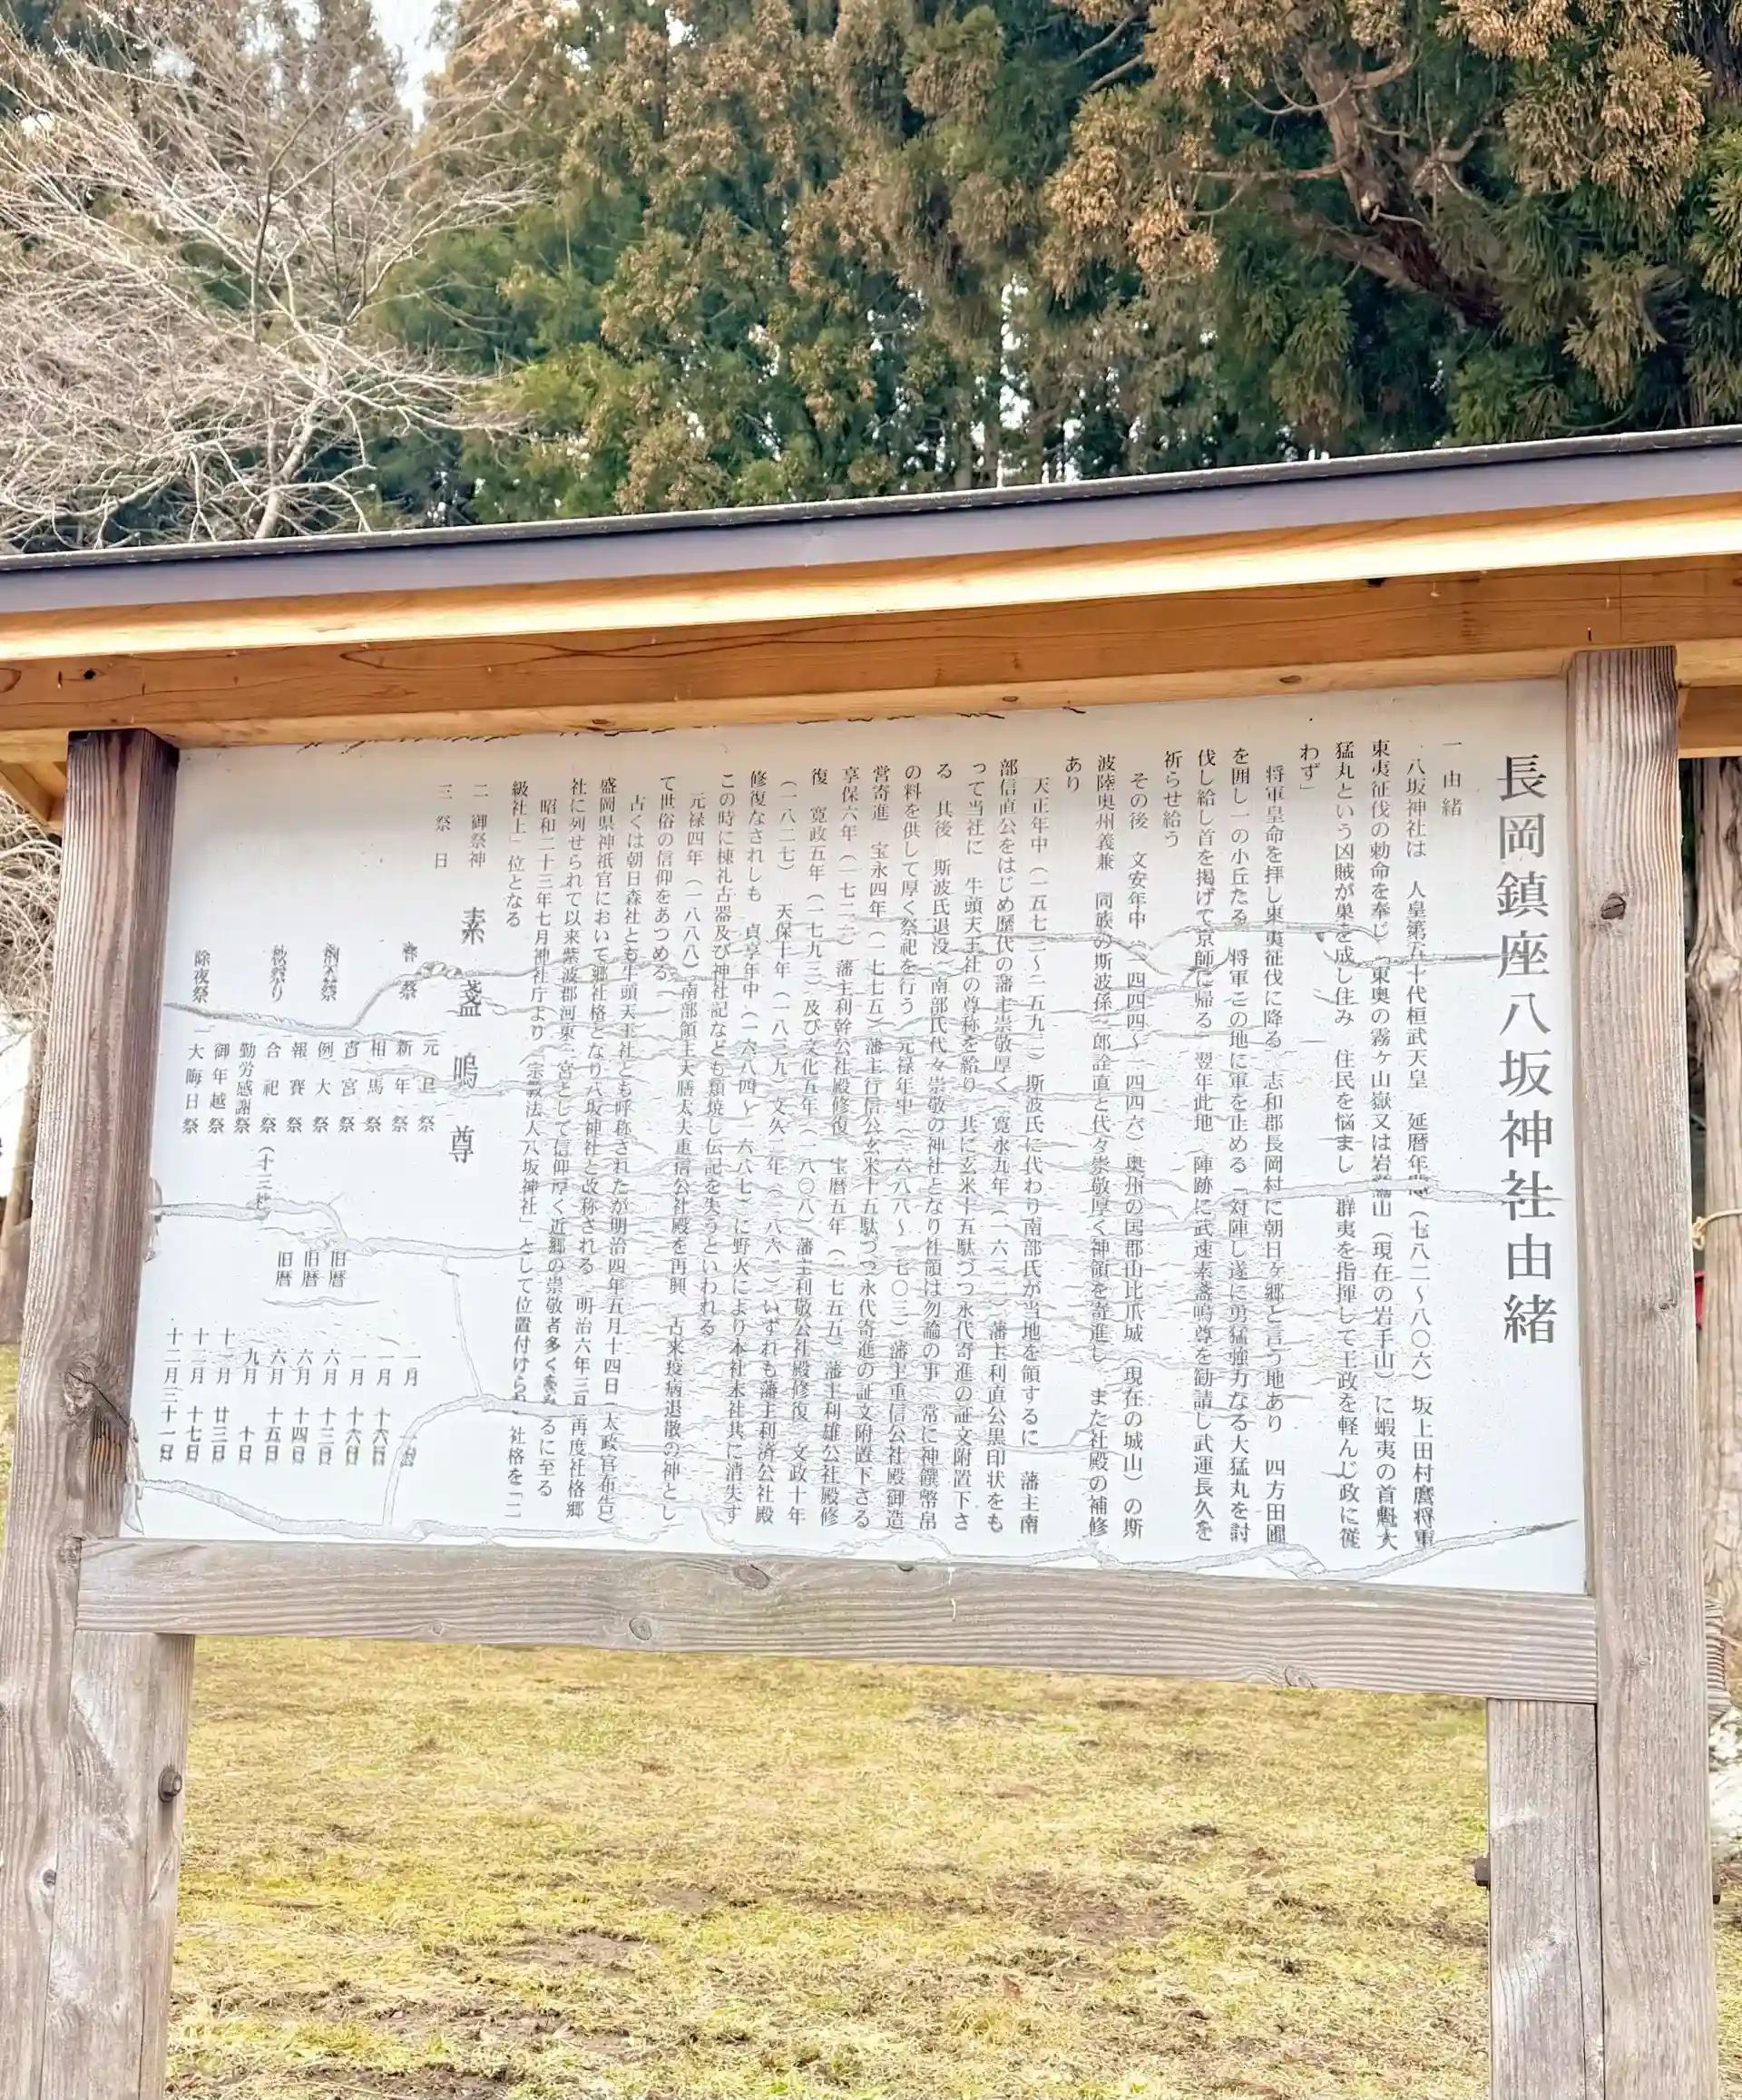 長岡鎮座八坂神社由緒
一 由緒
八坂神社は 人皇第五十代桓武天皇 延暦年間(七八二～八〇六)坂上田村麿将軍
東夷征伐の勅命を奉じ「東奥の霧ケ山嶽又は岩鷲山(現在の岩手山)に蝦夷の首魁大
猛丸という凶賊が巣を成し住み 住民を悩まし 群夷を指揮して王政を軽んじ政に従
わず」
将軍皇命を拝し東夷征伐に降る 志和郡長岡村に朝日ヶ郷と言う地あり 四方田圃
を囲し一の小丘たる 将軍この地に軍を止める 対陣し遂に勇猛強力なる大猛丸を討
伐し給し首を掲げて京師に帰る 翌年此地 陣跡に武速素盞嗚尊を勧請し武運長久を
祈らせ給う
その後 文安年中(一四四四～一四四六)奥州の国郡山比爪城(現在の城山)の斯
波陸奥州義兼 同族の斯波孫三郎詮直と代々崇敬厚く神領を寄進し また社殿の補修
あり
天正年中(一五七三～一五九二)斯波氏に代わり南部氏が当地を領するに 藩主南
部信直公をはじめ歴代の藩主崇敬厚く 寛永五年 藩主利直公黒印状をも
って当社に 牛頭天王社の尊称を給り 共に玄米十五駄づつ永代寄進の証文附置下さ
る 其後 斯波氏退没 南部氏代々崇敬の神社となり社領は勿論の事 常に神饌幣帛
の料を供して厚く祭祀を行う 元禄年中(一六八八～一七〇三)藩主重信公社殿御造
営寄進 宝永四年 藩主行信公玄米十五駄づつ永代寄進の証文附置下さる
享保六年(一七二一)藩主利幹公社殿修復 宝暦五年(一七五五)藩主利雄公社殿修
復 寛政五年(一七九三)及び文化五年(一八〇八)藩主利敬公社殿修復 文政十年
(一八二七) 天保十年(一八三九)文久二年(一八六二)いずれも藩主利済公社殿
修復なされしも 貞享年中(一六八四～一六八七)に野火により本社末社共に消失す
この時に棟札古器及び神社記なども類焼し伝記を失うといわれる
元禄四年 南部領主大膳太夫重信公社殿を再興 古来疫病退散の神とし
て世俗の信仰をあつめる
古くは朝日森社とも牛頭天王社とも呼称されたが明治四年五月十四日(太政官布告)
盛岡県神祇官において郷社格となり八坂神社と改称される 明治六年三月再度社格郷
社に列せられて以来紫波郡河東一宮として信仰厚く近郷の崇敬者多く るに至る
昭和二十三年七月神社庁より「宗教法人八坂神社」として位置付けられ 社格を「一
級社上」位となる
二 御祭神 素盞嗚尊
三 祭日
元旦祭 一月
春祭 新年祭 一月 十六日
相馬祭 一月 十六日
例大祭 宵宮祭 旧暦 六月 十三日
例大祭 旧暦 六月 十四日
報賽祭 旧暦 六月 十五日
秋祭り 合祀祭(十三社) 九月 十日
勤労感謝祭 十一月 廿三日
御年越祭 十二月 十七日
除夜祭 大晦日祭 十二月三十一日